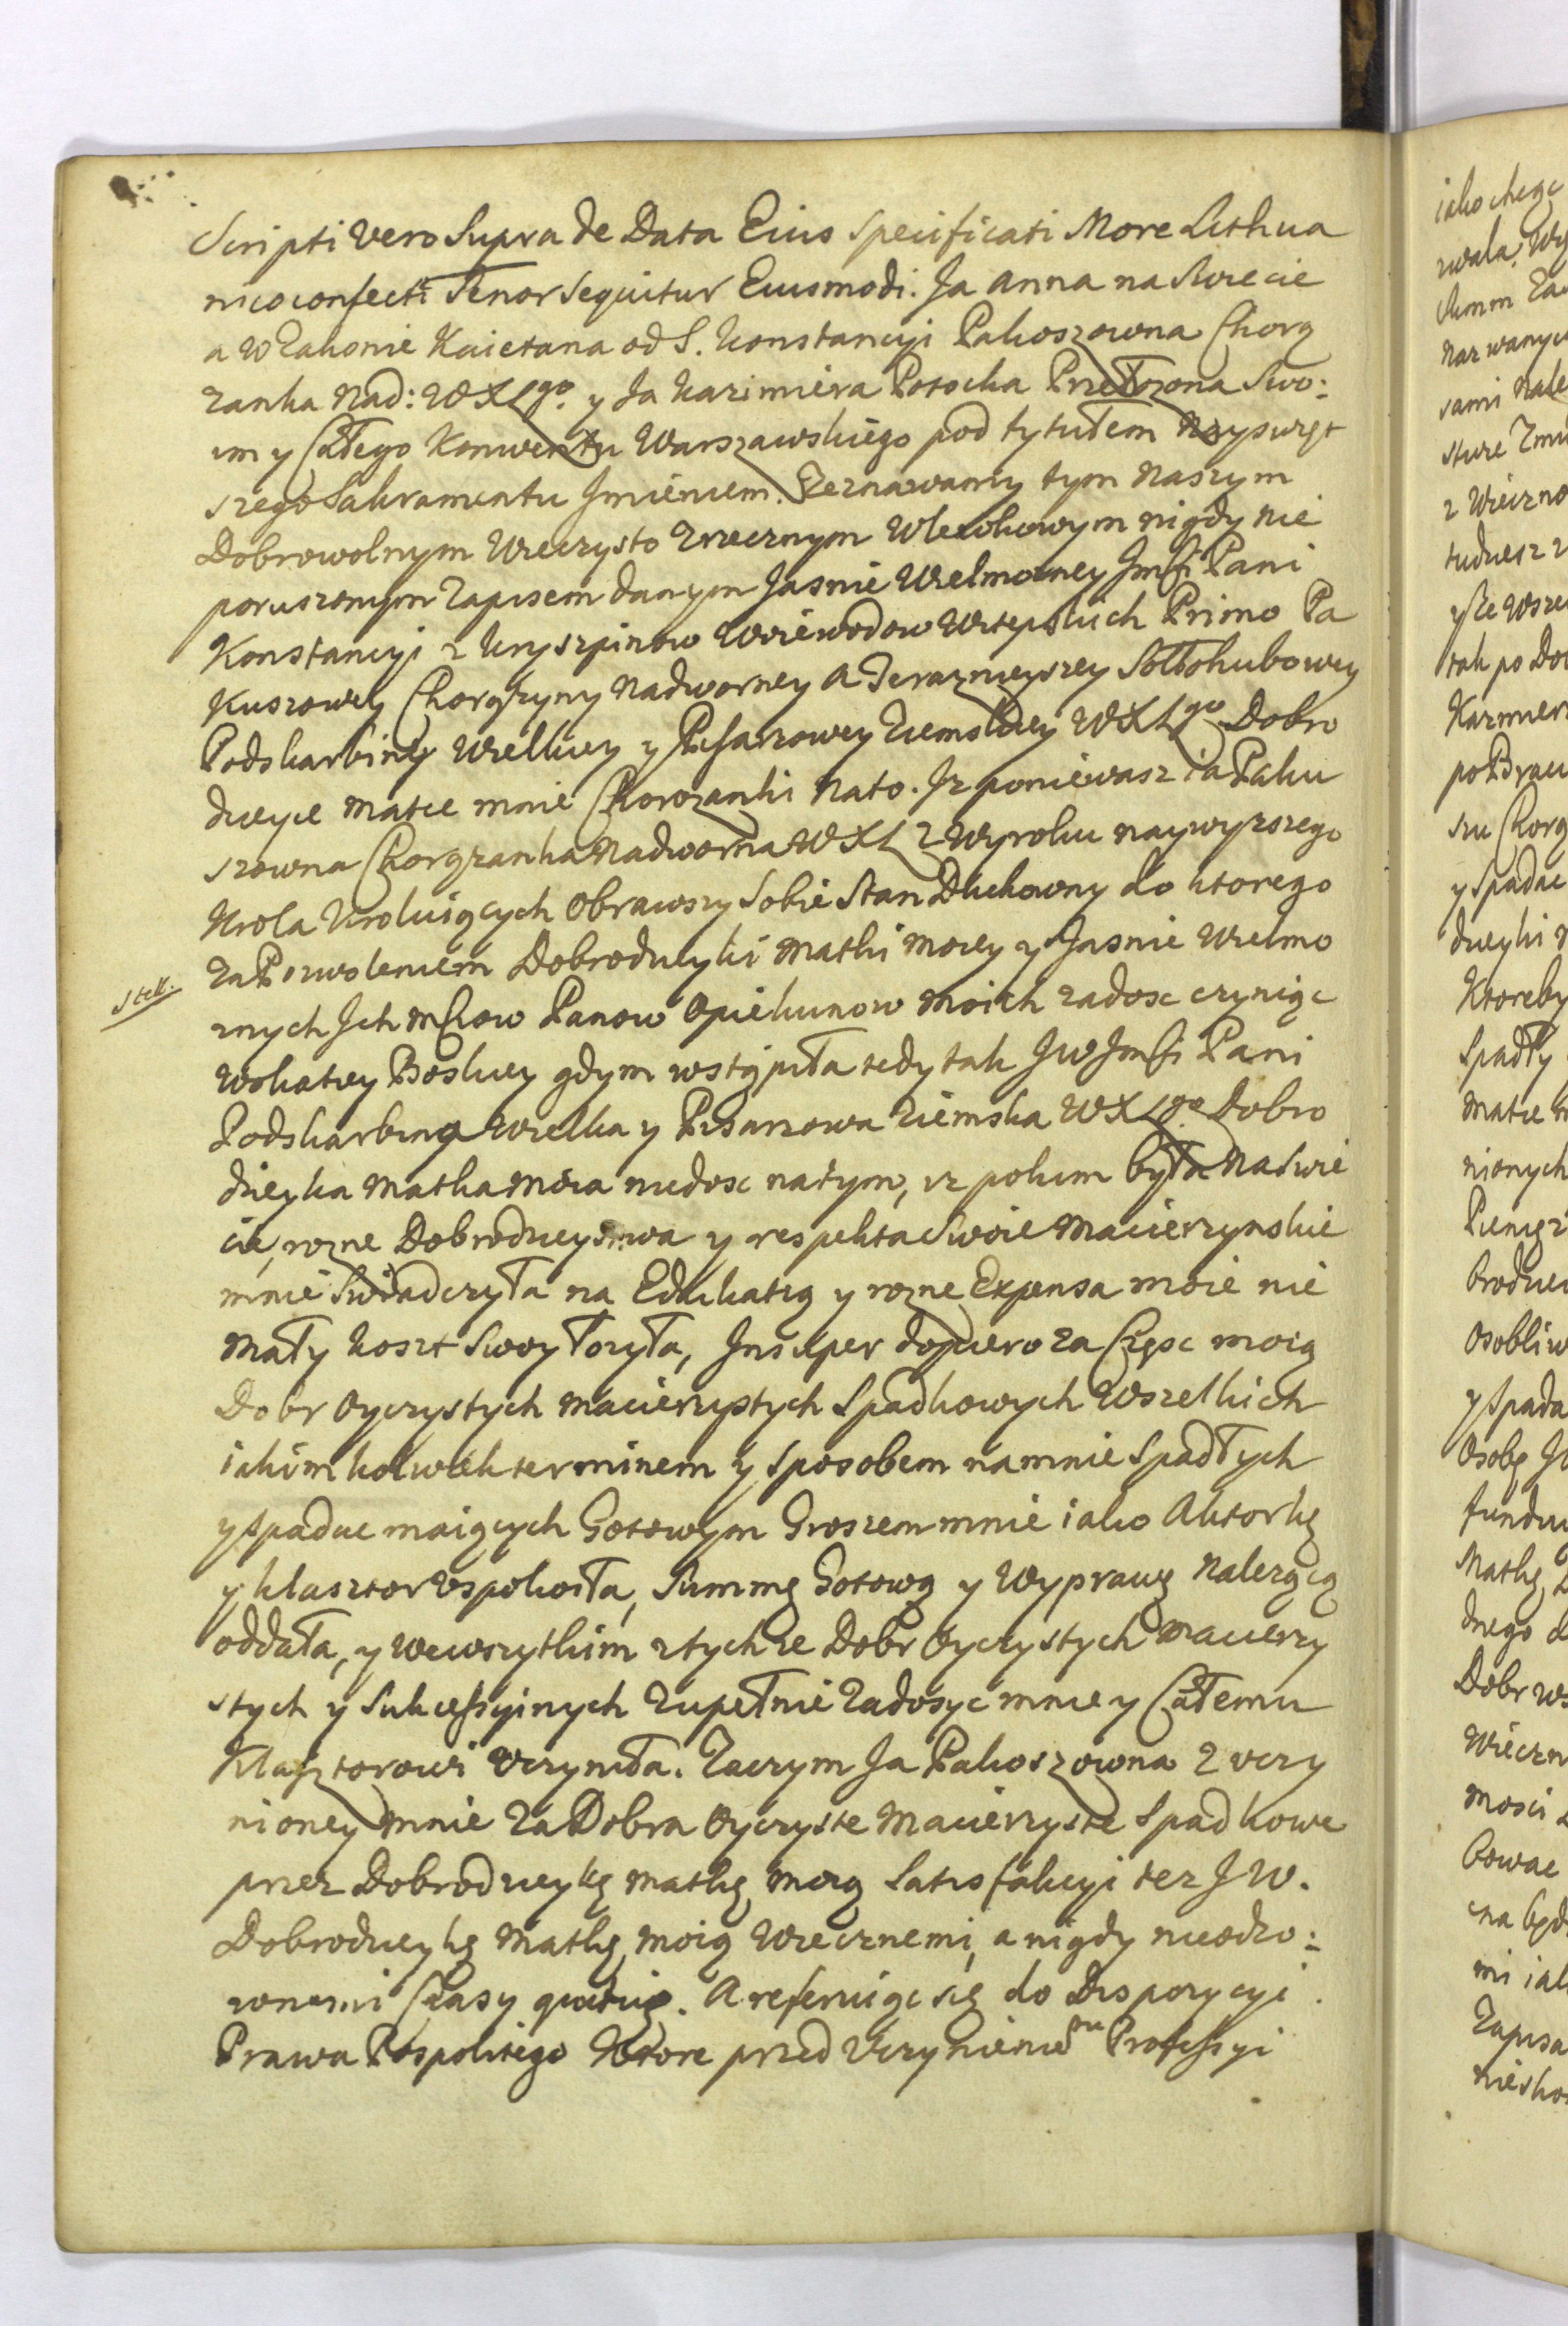 Scripti vero Supra de Data Eius Specificati More Lithua
nico confecti Tenor Sequitur Eiusmodi. Ja Anna na Swiecie
a w Zakonie Kaietana od S. Konstancyi Pakoszowna Chorą
zanka Nad: WXLgo. y Ja Kazimiera Potocka Przełozona Swo:
im y Całego Konwentu Warszawskiego pod tytułem Nayswięt
szego Sakramentu Jmieniem. Zeznawamy tym Naszym
Dobrowolnym Wieczysto Zrzecznym Wlewkowym nigdy nie
poruszonym Zapisem danym Jasnie Wielmozney Jmści Pani
Konstancyi z Kryszpinow Woiewodow Witepskich Primo Pa
Kuszowey Chorązyny Nadworney a Teraznieyszey Sołłohubowey
Podskarbiny Wielkiey y Pisarzowey Ziemskiey WXLgo Dobro
dzieyce Matce mnie Chorozanki Nato. Jz poniewasz ia Paku
szowna Chorązanka Nadworna WXL z Wyroku naywyzszego
Krola Kroluiących Obrawszy Sobie Stan Duchowny do ktorego
za Pozwoleniem Dobrodzieyki Matki Moiey y Jasnie Wielmo
znych Jch mściow Panow Opiekunow Moich zadosc czyniąc
Wokatiey Boskiey gdym wstąpiła tedy tak JwJmści Pani
Podskarbina Wielka y Pisarzowa Ziemska WXLgo. Dobro
dzieyka Matka Moia niedosc natym, iz pokim była Na Swie
cie, rozne Dobrodzieystwa y respekta Swoie Macierzynskie
mnie Swiadczyła na Edukatią y rozne Expensa moie nie
Mały koszt Swoy łozyła, Jnsuper dopiero za Częsc moią
Dobr Oyczystych Macierzystych Spadkowych Wszelkich
iakimkolwiek terminem y Sposobem namnie Spadłych
y Spadac maiących Gotowym Groszem mnie iako Aktorkę
y klasztor Uspokoiła, Summę Gotową y Wyprawę Nalezącą
oddała, y wewszytkim ztychze Dobr Oyczystych Macierzy
stych y Sukcessyinych Zupełnie Zadosyc mnie y Całemu
Klasztorowi Uczyniła. Zaczym Ja Pakoszowna z uczy
nioney mnie Za Dobra Oyczyste Macierzyste Spadkowe
przez Dobrodzieykę Matkę Moią Satisfakcyi tez JW.
Dobrodzieykę Matkę Moią Wiecznemi, a nigdy nieodzo:
wnemi Czasy kwituię. A referuiąc się do Dispozycyi
Prawa Pospolitego Ktore przed Uczynieniem Professyi